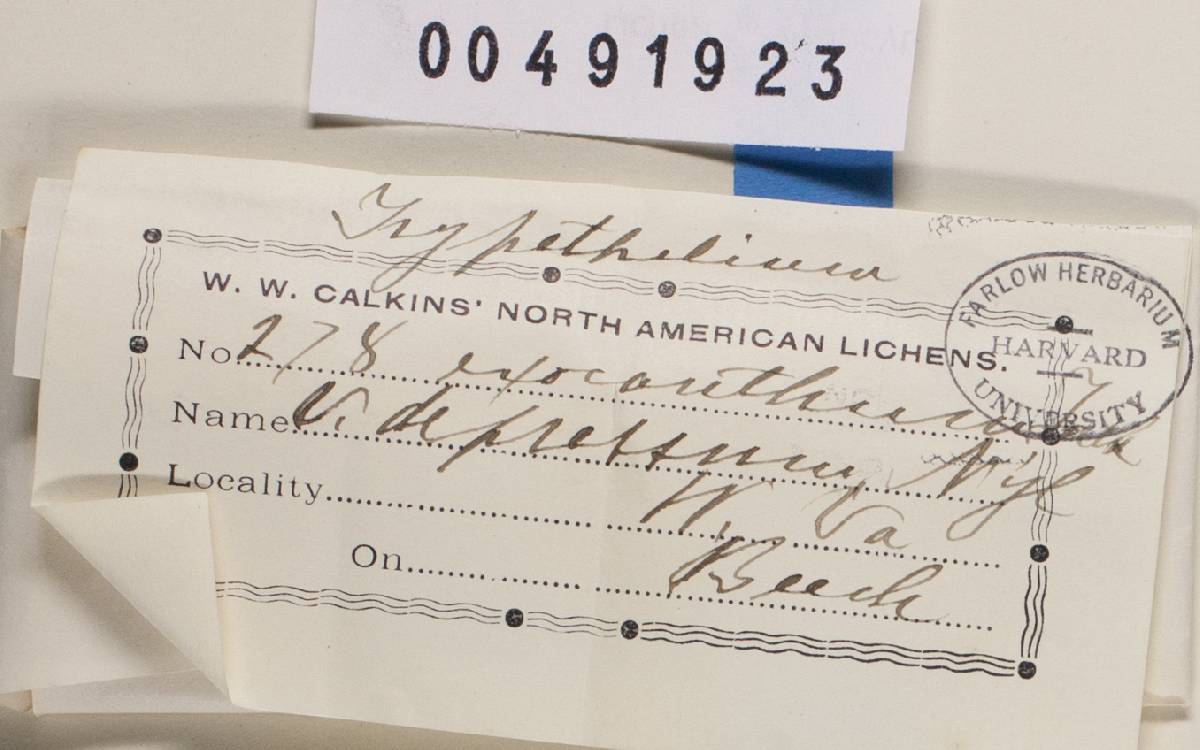 00491923
Trypethelium
W. W. CALKINS' NORTH AMERICAN LICHENS.
FARLOW HERBARIUM
HARVARD
UNIVERSITY
No. 278 exocanthum
Name V. depressum Nyl
Locality W. Va
On Beech